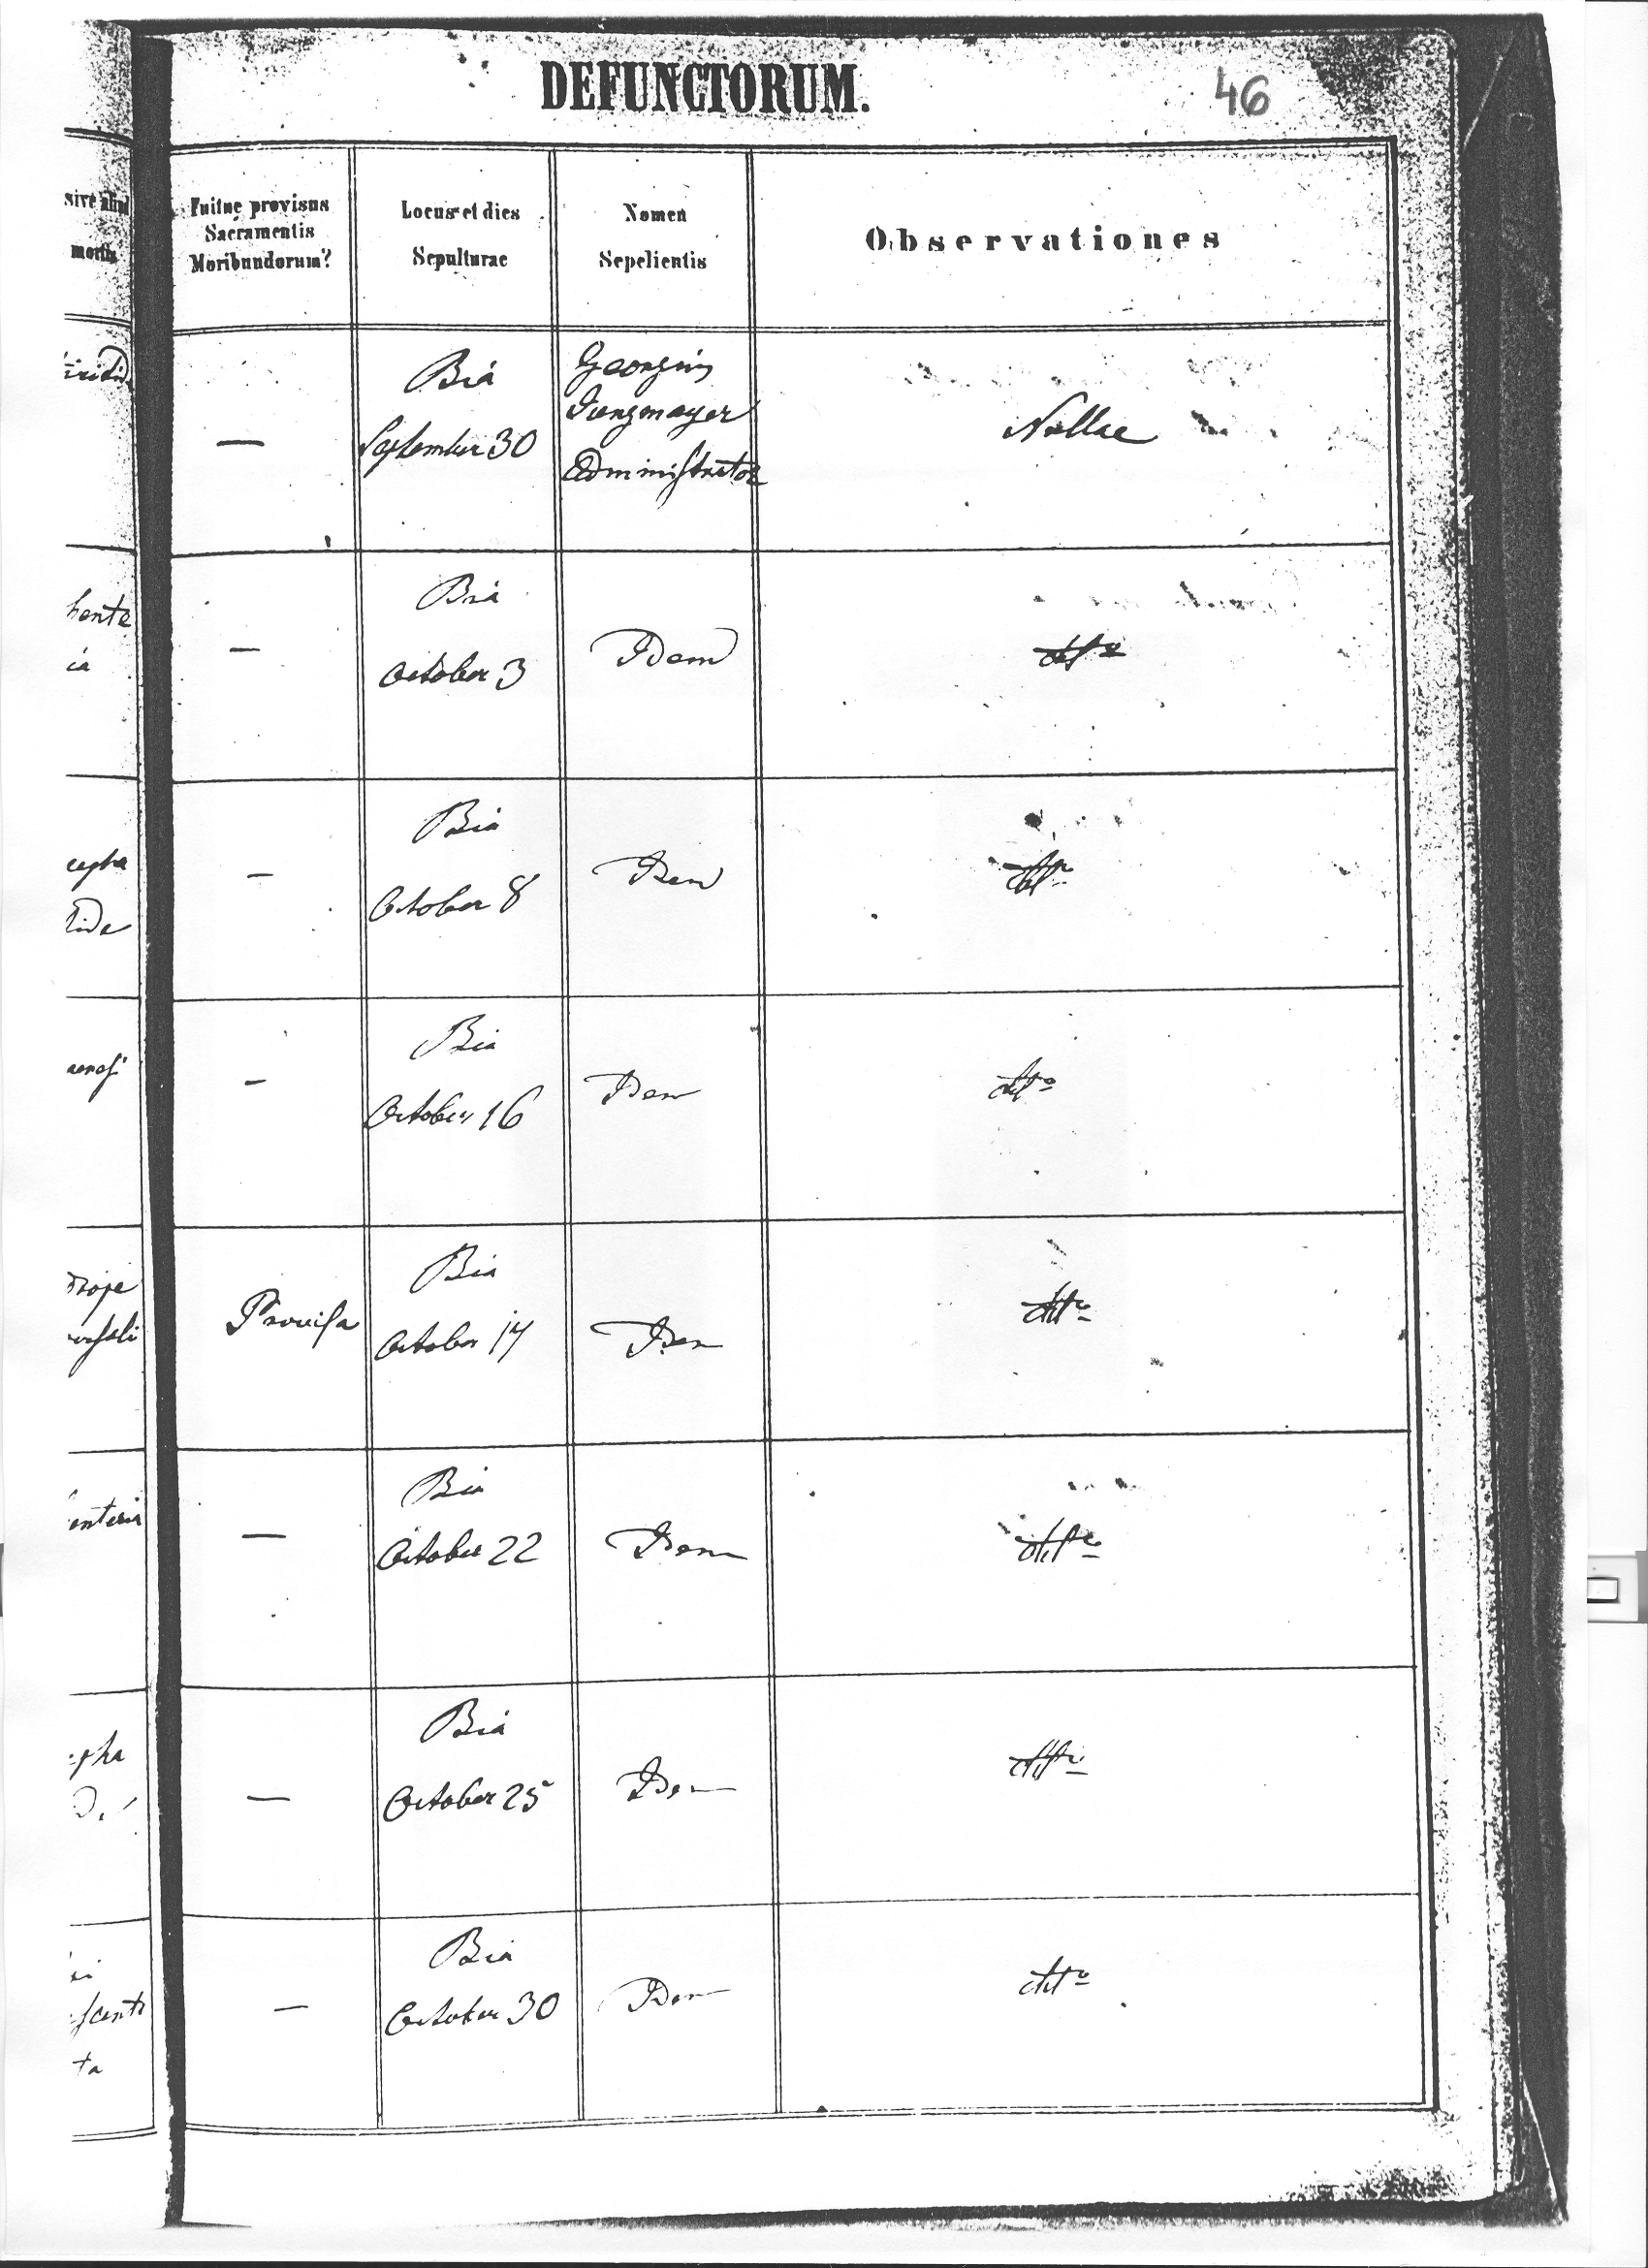 DEFUNCTORUM.
46
mortis
Fuitne provisus
Sacramentis
Moribundorum?
Locus et dies
Sepulturae
Nomen
Sepelientis
Observationes
—
Biá
September 30
Georgius
Jungmayer
Administrator
Nullae
hente
ia
—
Biá
October 3
Idem
dtto
cepha
lide
—
Biá
October 8
Idem
dtto
—
Biá
October 16
Idem
dtto
Provisa
Biá
October 17
Idem
dtto
enteria
—
Biá
October 22
Idem
dtto
epha
—
Biá
October 25
Idem
dtto
scenti
ta
—
Biá
October 30
Idem
dtto